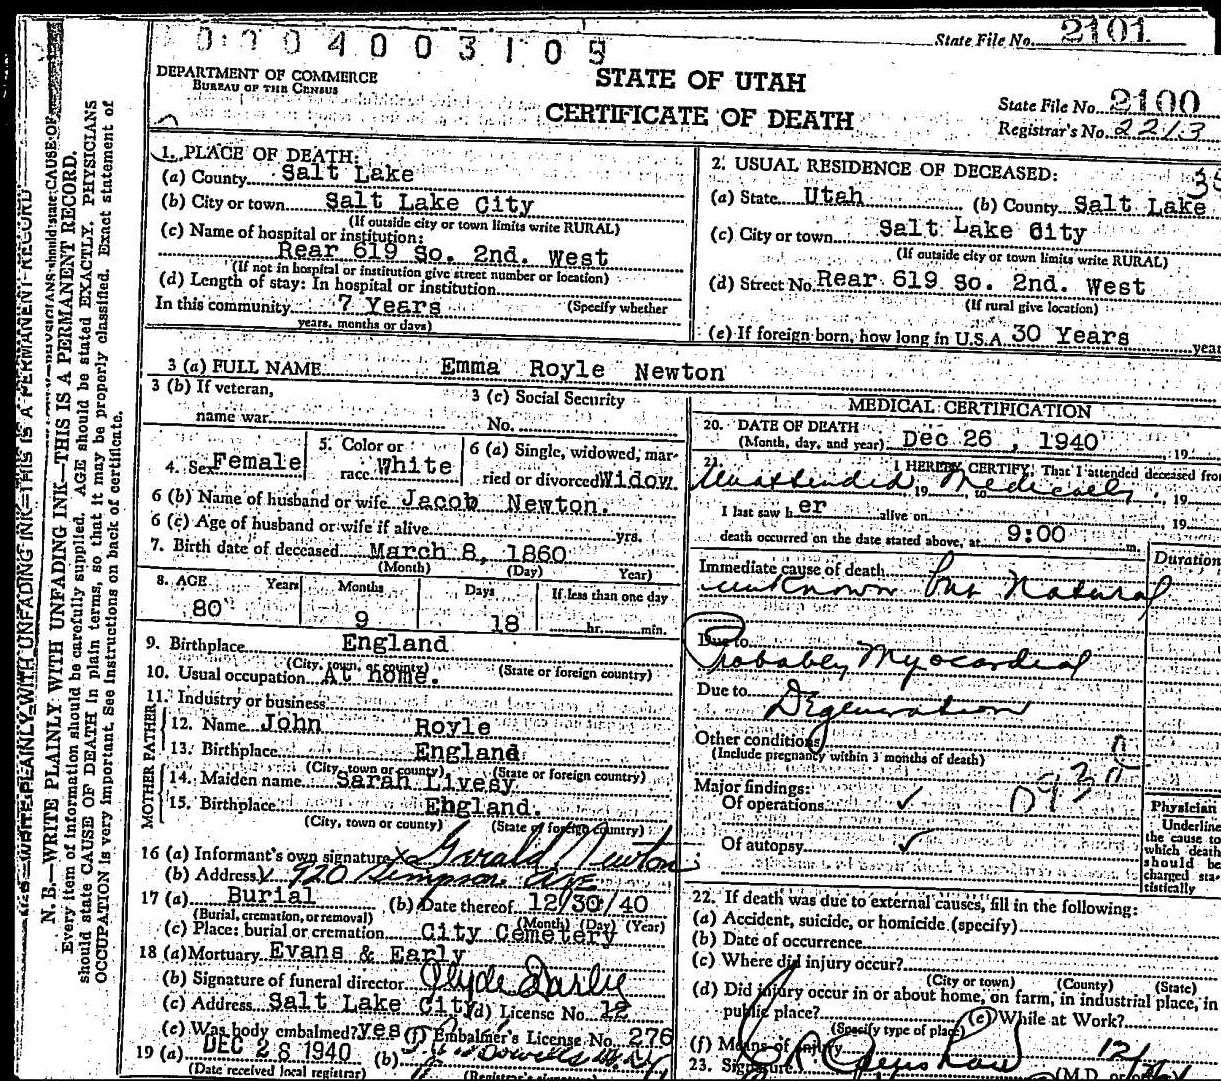 0 0 0 4 0 0 3 1 0 9
State File No. 2101
DEPARTMENT OF COMMERCE
BUREAU OF THE CENSUS
STATE OF UTAH
CERTIFICATE OF DEATH
State File No. 2100
Registrar's No. 2213
1. PLACE OF DEATH:
(a) County Salt Lake
(b) City or town Salt Lake City
(If outside city or town limits write RURAL)
(c) Name of hospital or institution:
Rear 619 So. 2nd. West
(If not in hospital or institution give street number or location)
(d) Length of stay: In hospital or institution
In this community 7 Years (Specify whether
years, months or days)
2. USUAL RESIDENCE OF DECEASED: 35
(a) State Utah (b) County Salt Lake
(c) City or town Salt Lake City
(If outside city or town limits write RURAL)
(d) Street No. Rear 619 So. 2nd. West
(If rural give location)
(e) If foreign born, how long in U.S.A. 30 Years year
3 (a) FULL NAME Emma Royle Newton
3 (b) If veteran,
name war
3 (c) Social Security
No.
4. Sex Female
5. Color or
race White
6 (a) Single, widowed, mar-
ried or divorced Widow.
6 (b) Name of husband or wife Jacob Newton.
6 (c) Age of husband or wife if alive yrs.
7. Birth date of deceased March 8, 1860
(Month) (Day) Year)
8. AGE Years Months Days If less than one day
80 9 18 hr. min.
9. Birthplace England
(City, town, or county) (State or foreign country)
10. Usual occupation At home.
11. Industry or business
FATHER
12. Name John Royle
13. Birthplace England
(City, town or county) (State or foreign country)
MOTHER
14. Maiden name Sarah Livesy
15. Birthplace England.
(City, town or county) (State of foreign country)
16 (a) Informant's own signature x Gerald Newton
(b) Address 920 Simpson Ave
17 (a) Burial (b) Date thereof 12/30/40
(Burial, cremation, or removal) (Month) (Day) (Year)
(c) Place: burial or cremation City Cemetery
18 (a) Mortuary Evans & Early
(b) Signature of funeral director Clyde Darlie
(c) Address Salt Lake City (d) License No. 12
(e) Was body embalmed? yes (f) Embalmer's License No. 276
19 (a) DEC 28 1940 (b)
(Date received local registrar) (Registrar's signature)
MEDICAL CERTIFICATION
20. DATE OF DEATH
(Month, day, and year) Dec 26, 1940 , 19
21. I HEREBY CERTIFY, That I attended deceased from
Unattended , 19 to Medically , 19
I last saw h er alive on , 19
death occurred on the date stated above, at 9:00 m.
Duration
Immediate cause of death
unknown but Natural
Due to
Probably Myocardial
Due to
Degeneration
Other conditions
(Include pregnancy within 3 months of death)
Major findings: 093
Of operations ✓
Of autopsy ✓
Physician
Underline
the cause to
which death
should be
charged sta-
tistically
22. If death was due to external causes, fill in the following:
(a) Accident, suicide, or homicide (specify)
(b) Date of occurrence
(c) Where did injury occur?
(City or town) (County) (State)
(d) Did injury occur in or about home, on farm, in industrial place, in
public place? (e) While at Work?
(Specify type of place)
(f) Means of injury
23. Signature (M.D. or
WRITE PLAINLY WITH UNFADING INK—THIS IS A PERMANENT RECORD
N. B.—WRITE PLAINLY WITH UNFADING INK—THIS IS A PERMANENT RECORD.
Every item of information should be carefully supplied. AGE should be stated EXACTLY. PHYSICIANS
should state CAUSE OF DEATH in plain terms, so that it may be properly classified. Exact statement of
OCCUPATION is very important. See instructions on back of certificate.